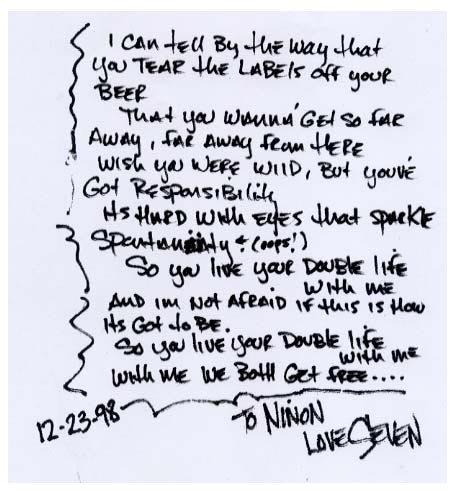 I CAN tell By the way that
you TEAR the LABEls off your
BEER
THAT you WANNA' GEt SO FAR
AWAY, FAR AWAY from HERE
WISH you WERE WIlD, BUT youVE'
Got RESponSIBility
Its HARD WITH EYES that SPARKlE
(oops!)
So you lIVE your DOUBLE lIfE
WITH ME
AND Im NOT AfRAID If this is How
Its Got to BE.
So you lIVE your DOUBLE lIfE
WITH ME
WITH ME WE BOTH GEt FREE....
12-23-98
To NINON
LOVE SEVEN